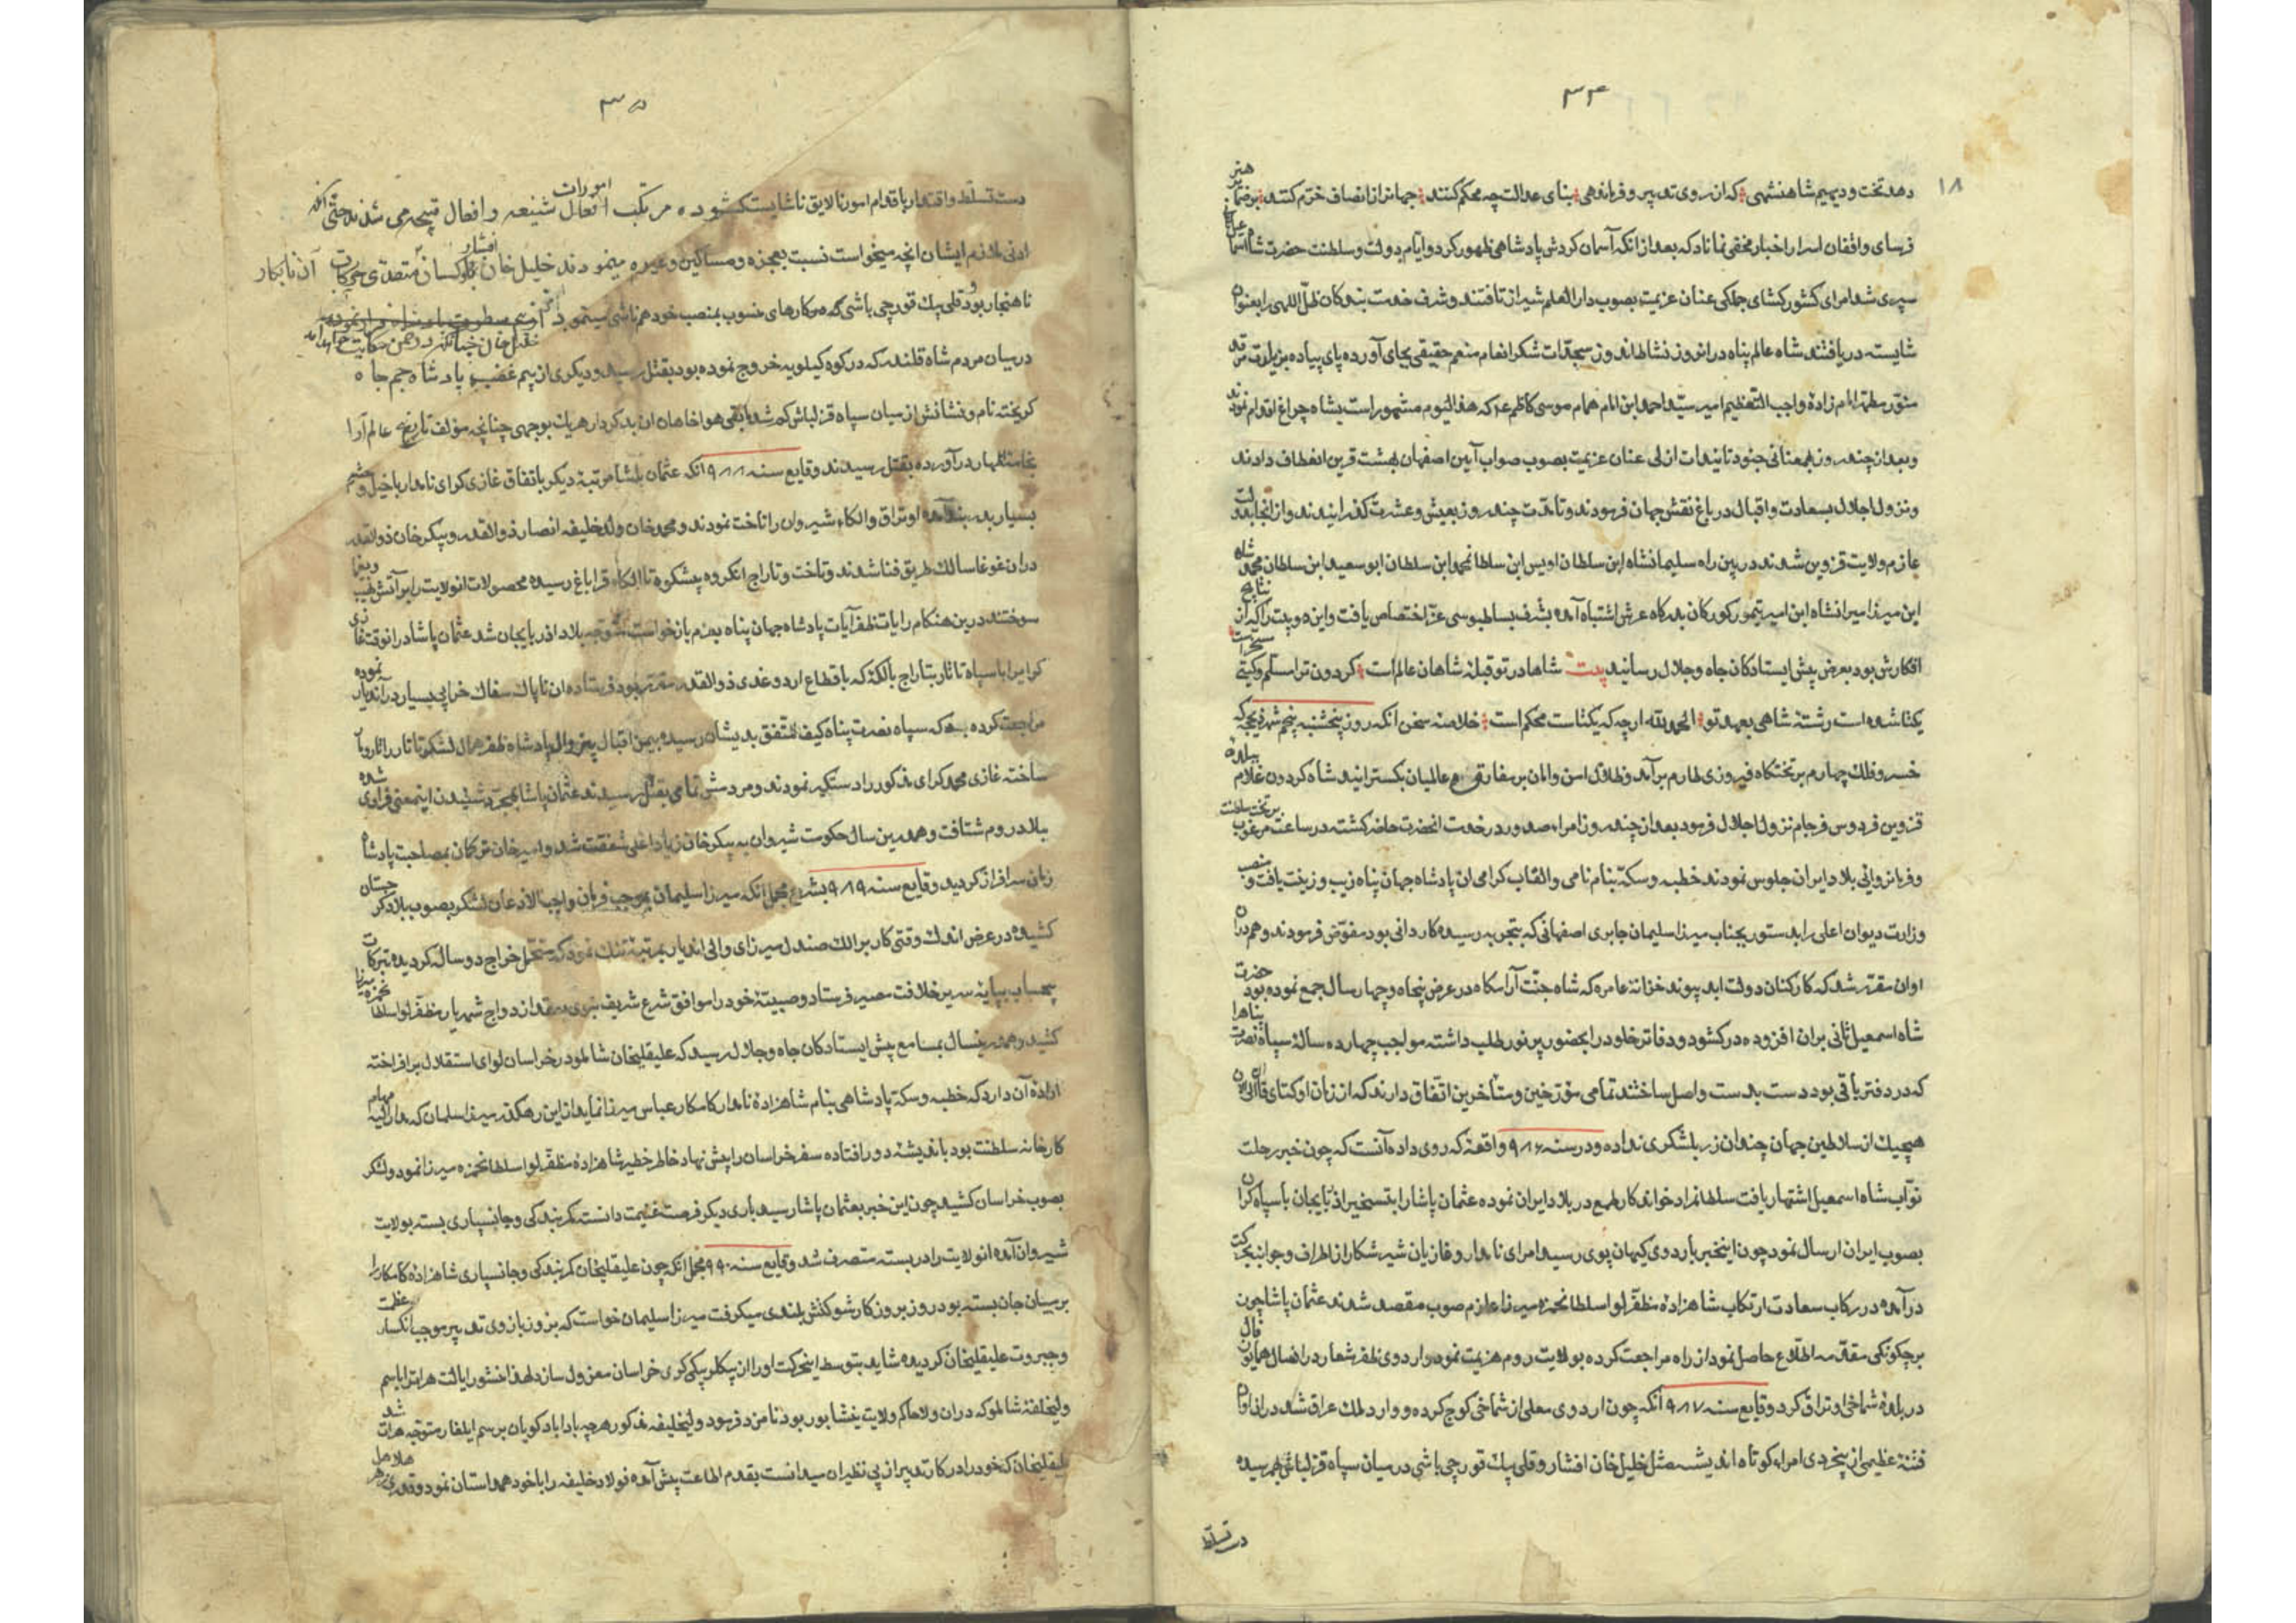 ۳۴
۱۸
دهد تخت و دیهیم شاهنشهی که از روی تدبیر و فرماندهی بنای عدالت چه محکم کنند جهانرا از انصاف خرّم کنند بر ضمایر هنر
فرسای واقفان اسرار اخبار مخفی نماناد که بعد از آنکه آسمان کردش پادشاهی ظهور کرد و ایام دولت و سلطنت حضرت شاه
سپری شد امرای کشور کشای جملکی عنان عزیمت بصوب دار العلم شیراز تافتند و شرف خدمت بندکان ظلّ اللهی را بعنوان
شایسته دریافتند شاه عالم پناه در انروز نشاط اندوز سجدّات شکر انعام منعم حقیقی بجای آورده پای پیاده بزیارت مرقد
منوّر مطهّر امام زادهٔ واجب التعظیم امیر سیّد احمد ابن الامام همام موسی کاظم ع که هذا الیوم مشهور است بشاه چراغ اقدام نمود
و بعد از چند روز بهمعنانی جنود تاییدات ازلی عنان عزیمت بصوب صواب آیین اصفهان بهشت قرین انعطاف دادند
و نزول اجلال بسعادت و اقبال در باغ نقش جهان فرمودند و تا مدّت چند روز بعیش و عشرت کذرانیدند و از انجا بدولت
عازم ولایت قزوین شدند در بین راه سلیمانشاه ابن سلطان اویس ابن سلطانمحمد ابن سلطان ابو سعید ابن سلطان محمد شاه
ابن میرزا میرانشاه ابن امیر تیمور کورکان بدرکاه عرش اشتباه آمده بشرف بساط بوسی عزّ اختصاص یافت و این دو بیت را که از نتایج
افکارش بود بعرض پیش ایستادکان جاه و جلال رسانید بیت شاها در تو قبلهٔ شاهان عالم است کردون ترا مسلّم و کیتی مسخّر است
یکتا شده است رشتهٔ شاهی بعهد تو الحمد لله ارچه که یکتاست محکم است خلاصهٔ سخن انکه روز پنجشنبه پنجم شهر ذیحجه که
خسرو فلک چهارم بر تختکاه فیروزی طارم برآمد و ظلال امن و امان بر مفارق عالمیان بکسترانید شاه کردون غلام ببلدهٔ
قزوین فردوس فرجام نزول اجلال فرمود بعد از چند روز امراء صدور در خدمت انحضرت حاضر کشته در ساعت مرغوب بر تخت سلطنت
و فرمانروائی بلاد ایران جلوس نمودند خطبه و سکّه بنام نامی و القاب کرامی ان پادشاه جهان پناه زیب و زینت یافت و منصب
وزارت دیوان اعلی را بدستور بجناب میرزا سلیمان جابری اصفهانی که بتجربه رسیده کاردانی بود مفوّض فرمودند و هم دران
اوان مقرّر شد که کارکنان دولت ابد پیوند خزانهٔ عامره که شاه جنّت آرامکاه در عرض پنجاه و چهار سال جمع نموده بود حضرت
شاه اسمعیل ثانی بران افزوده در کشود و دفاتر خلود را بحضور پر نور طلب داشته مواجب چهارده سالهٔ سپاه نصرت پناه را
که در دفتر باقی بود دست بدست واصل ساختند تمامی مؤرخین و متأخرین اتّفاق دارند که از زمان اوکتای قاآن الی الان
هیچیک از سلاطین جهان چندان زر بلشکری نداده و در سنه ۹۸۶ واقعهٔ که روی داده آنست که چون خبر رحلت
نوّاب شاه اسمعیل اشتهار یافت سلطانمراد خواندکار طمع در بلاد ایران نموده عثمان پاشا را بتسخیر اذربایجان با سپاه کران
بصوب ایران ارسال نمود چون اینخبر باردوی کیهان پوی رسید امرای نامدار و غازیان شیر شکار از اطراف و جوانب بحرکت
درآمده در رکاب سعادت ارتکاب شاهزادهٔ مظفّر لوا سلطانحمزه میرزا عازم صوب مقصد شدند عثمان پاشا چون
بر چکونکی مقدّمه اطّلاع حاصل نمود از راه مراجعت کرده بولایت روم هزیمت نمود و اردوی ظفر شعار در انسال همایون فال
در بلدهٔ شماخی اوتراق کرد وقایع سنه ۹۸۷ انکه چون اردوی معلی از شماخی کوچ کرده و وارد ملک عراق شد در ان اوان
فتنهٔ عظیمی از بیخردی امراء کوتاه اندیشه مثل خلیل خان افشار و قلی بیک قورچی باشی در میان سپاه قزلباش بهم رسیده
دست تسلّط
۳۵
دست تسلّط و اقتدار باقدام امور نالایق ناشایست کشوده مرتکب امورات شنیعه و افعال قبیحه می شدند حتّی آنکه
ادنی ملازم ایشان انچه میخواست نسبت بعجزه و مساکین و غیره مینمودند خلیل خان افشار متصدّی حرکات آن نابکار
ناهنجار بود و قلی بیک قورچی باشی که کارهای منسوب بمنصب خود هم ناشی مینمود
خلیل خان چنانکه در ضمن حکایت خواهد آمد
در میان مردم شاه قلندر که در کوه کیلویه خروج نموده بود بقتل رسید و دیکری از بیم غضب پادشاه جم جاه
کریخته نام و نشانش از میان سپاه قزلباش کم شد باقی هواخاهان ان بد کردار هر یک بوجهی چنانچه مؤلف تاریخ عالم آرا
بقتل رسیدند وقایع سنه ۹۸۸ انکه عثمان پاشا مرتبهٔ دیکر باتفاق غازی کرای نامدار با خیل و حشم
بسیار بدربند آمده اوتراق و الکاء شیروان را تاخت نمودند و محمد خان ولد خلیفه انصار ذوالقدر و پیکر خان ذوالقدر
دران غوغا سالک طریق فنا شدند و تاخت و تاراج انکروه پیشکوه تا الکاء قراباغ رسیده محصولات انولایت را بر آتش نهب و یغما
سوختند درین هنکام رایات ظفر آیات پادشاه جهان پناه بعزم بازخواست متوجه بلاد اذربایجان شد عثمان پاشا در انوقت غازی
کرایرا با سپاه تاتار بتاراج بالکهٔ که باقطاع اردوغدی ذوالقدر مقرّر بود فرستاده ان ناپاک سفاک خرابی بسیار در آندیار نموده
مراجعت کرده که سپاه نصرت پناه کیف ما اتّفق بدیشان رسیده بیمن اقبال بیزوال پادشاه ظفر مآل لشکر تاتار را تار و مار
ساخته غازی محمد کرای مذکور را دستکیر نمودند و مردمش تمامی بقتل رسیدند عثمان پاشا بمجرّد شنیدن اینمعنی فراری شده
ببلاد روم شتافت و همدرین سال حکومت شیروان به پیکر خان زیاد اغلی شفقت شد و امیر خان ترکمان بمصاحبت پادشاه
زمان سرافراز کردید وقایع سنه ۹۸۹ بشرح مجمل انکه میرزا سلیمان بموجب فرمان واجب الاذعان لشکر بصوب بلاد کرجستان
کشیده در عرض اندک وقتی کار بر الک صندل میرزای والی اندیار بمرتبهٔ تنک نمود که متحمّل خراج دو سال کردیده تبرکات
بیحساب بپایهٔ سریر خلافت مصیر فرستاد و صبیّهٔ خود را موافق شرع شریف نبوی بعقد ازدواج شهریار مظفّر لوا سلطانحمزه میرزا
کشید و همدرینسال بمسامع پیش ایستادکان جاه و جلال رسید که علیقلیخان شاملو در خراسان لوای استقلال برافراخته
ارادهٔ آن دارد که خطبه و سکهٔ پادشاهی بنام شاهزادهٔ نامدار کامکار عباس میرزا نماید از این رهکذر میرزا سلمان که مدار الیه مهام
کارخانهٔ سلطنت بود باندیشهٔ دور افتاده سفر خراسان را پیش نهاد خاطر خطیر شاهزادهٔ مظفّر لوا سلطانحمزه میرزا نمود و لشکر
بصوب خراسان کشید چون این خبر بعثمان پاشا رسید باری دیکر فرصت غنیمت دانسته کمر بندکی و جانسپاری بسته بولایت
شیروان آمده انولایت را دربسته متصرف شد وقایع سنه ۹۹۰ مجمل انکه چون علیقلیخان کمر بندکی و جانسپاری شاهزادهٔ کامکار را
بر میان جان بسته بود روز بروز کار شوکتش بلندی میکرفت میرزا سلیمان خواست که بزور بازوی تدبیر موجب انکسار عظمت
و جبروت علیقلیخان کردیده شاید بتوسط اینحرکت او را از بیکلربیکی کری خراسان معزول سازد لهذا منشور ایالت هرات را باسم
ولیخلیفهٔ شاملو که دران ولا حاکم ولایت نیشابور بود نامزد فرمود ولیخلیفه مذکور هرچه باداباد کویان برسم ایلغار متوجه هرات شد
علیقلیخان که خود را در کار تدبیر از بی نظیران میدانست بقدم اطاعت پیش آمده فولاد خلیفه را با خود همداستان نمود و قدری زهر هلاهل